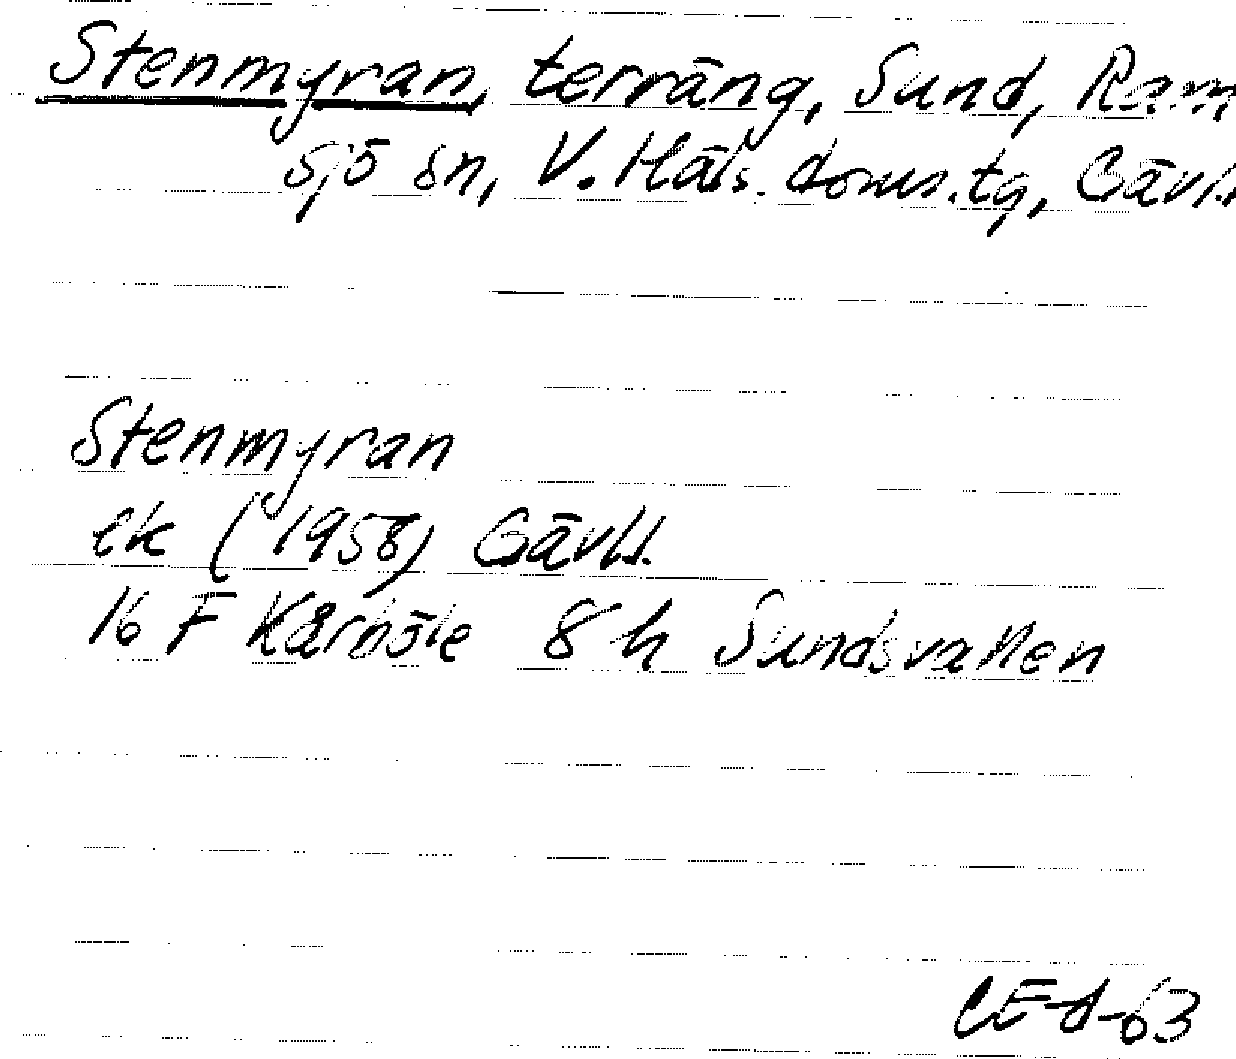 Stenmyran, terräng, Sund, Ram
sjö sn, V. Häls. doms.tg, Gävl.
Stenmyran
ek (1958) Gävll.
16 F Kårböle 8 h Sundsvallen
CE-d-63